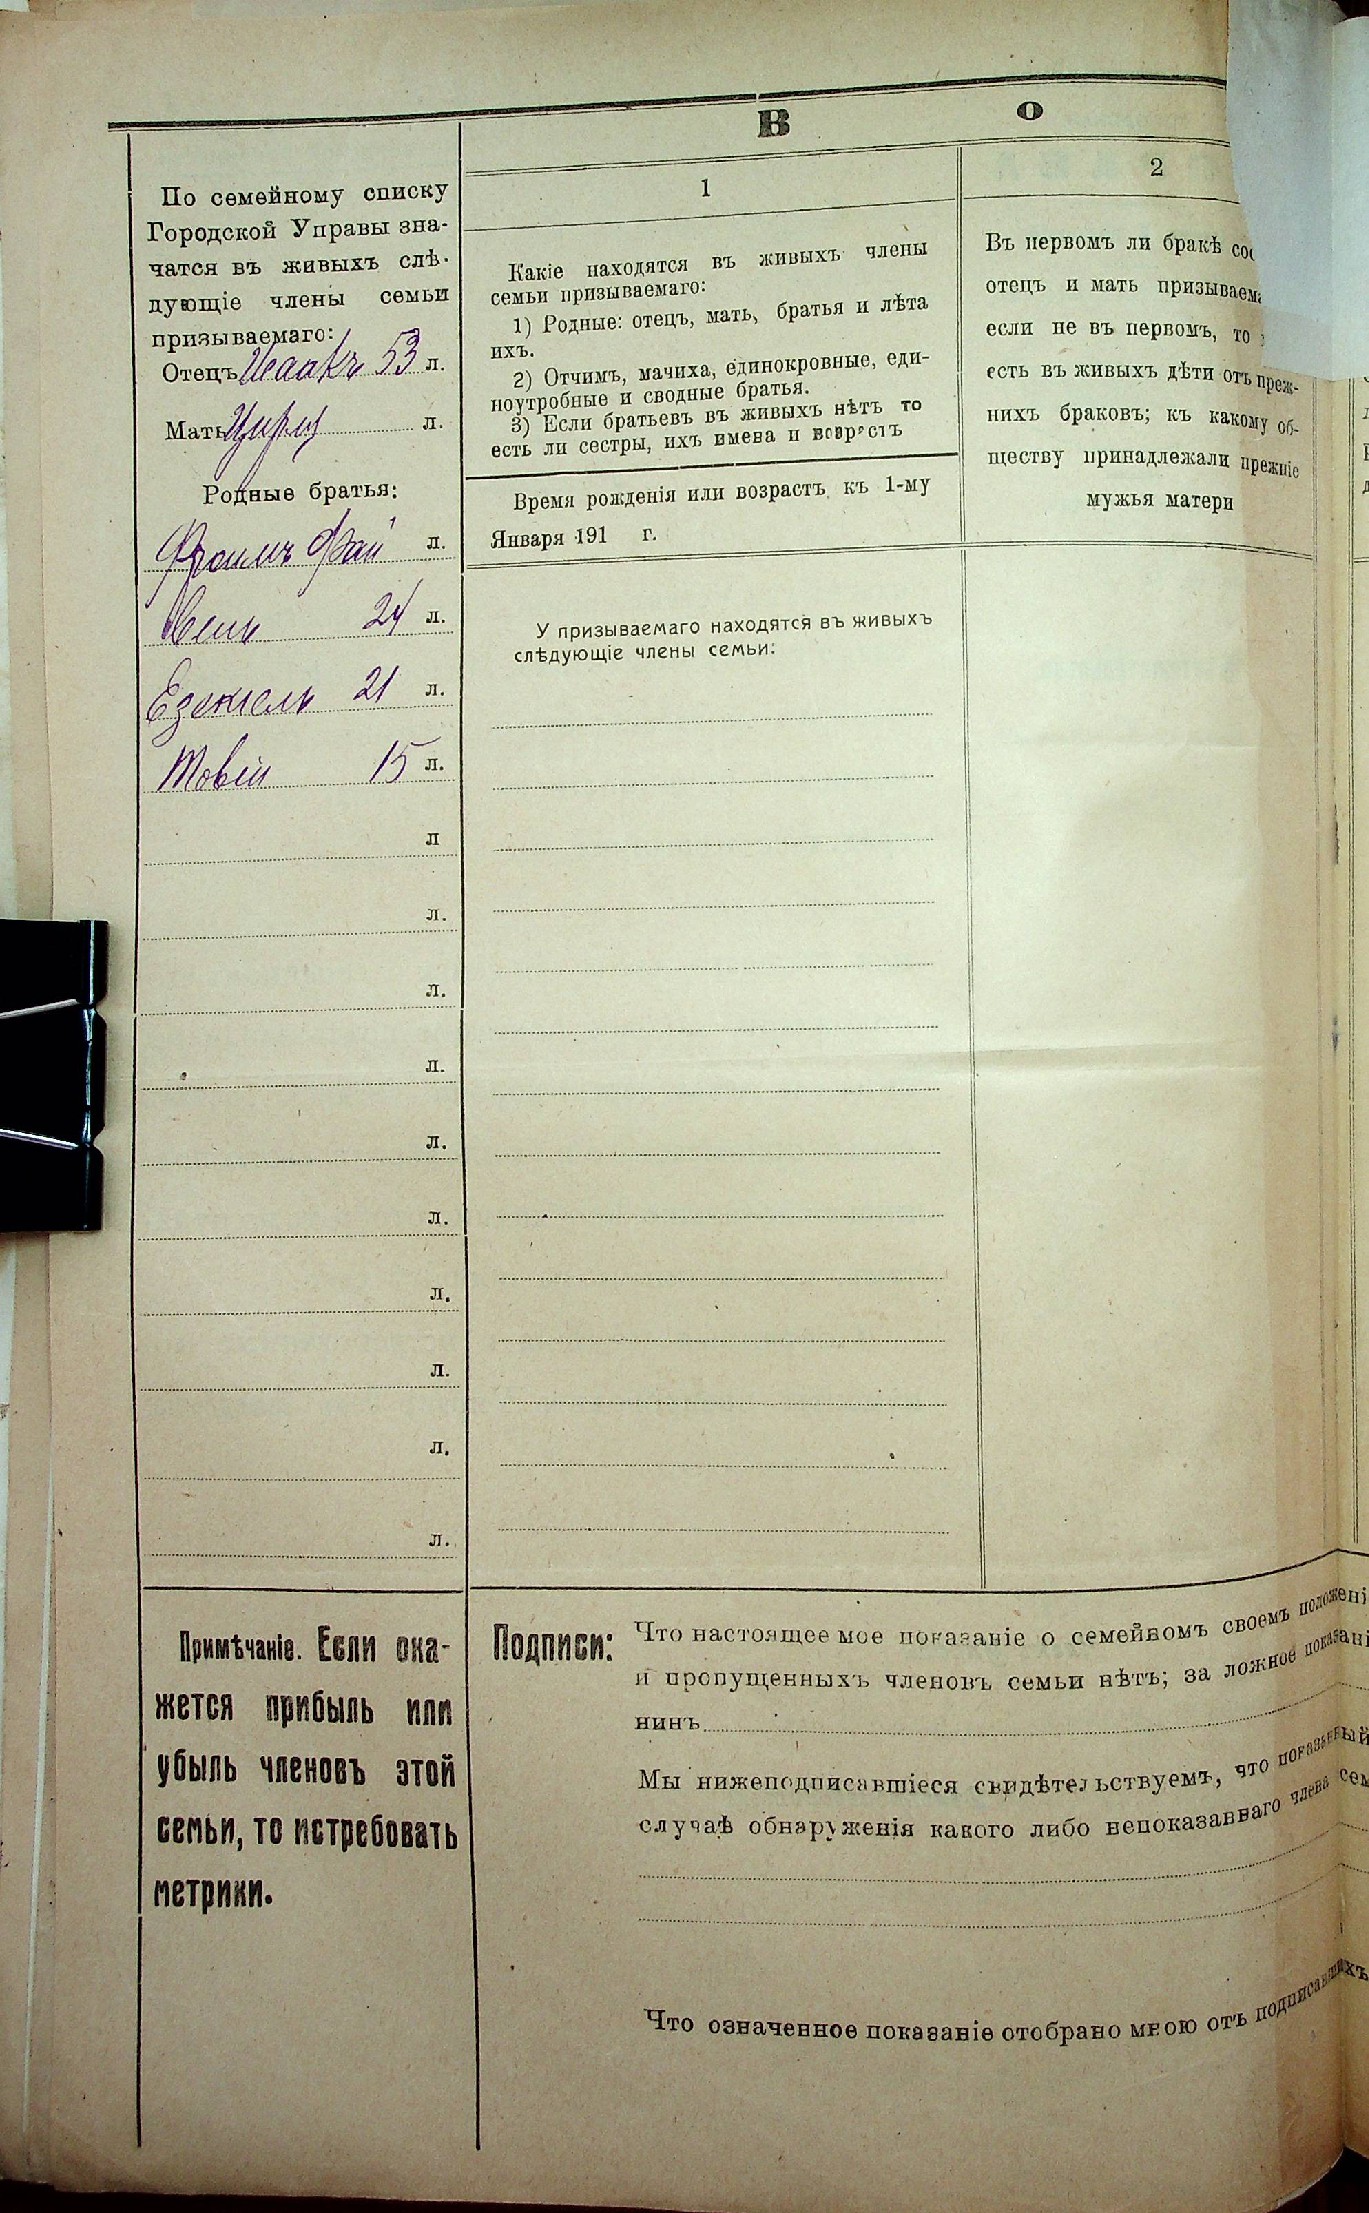 В о
По семейному списку
Городской Управы зна-
чатся въ живыхъ слѣ-
дующіе члены семьи
призываемаго:
Отецъ Исаакъ 53 л.
Мать Цирл л.
Родные братья:
Фроимъ Фай л.
вель 24 л.
Езекіель 21 л.
Товій 15 л.
л
л.
л.
л.
л.
л.
л.
л.
л.
л.
Примѣчаніе. Если ока-
жется прибыль или
убыль членовъ этой
семьи, то истребовать
метрики.
1
Какіе находятся въ живыхъ члены
семьи призываемаго:
1) Родные: отецъ, мать, братья и лѣта
ихъ.
2) Отчимъ, мачиха, единокровные, еди-
ноутробные и сводные братья.
3) Если братьевъ въ живыхъ нѣтъ то
есть ли сестры, ихъ имена и возрастъ
Время рожденія или возрастъ къ 1-му
Января 191 г.
У призываемаго находятся въ живыхъ
слѣдующіе члены семьи:
2
Въ первомъ ли бракѣ сос
отецъ и мать призываема
если не въ первомъ, то
есть въ живыхъ дѣти отъ преж-
нихъ браковъ; къ какому об-
ществу принадлежали прежніе
мужья матери
Подписи:
Что настоящее мое показаніе о семейномъ своемъ положені
и пропущенныхъ членовъ семьи нѣтъ; за ложное показані
нинъ
Мы нижеподписавшіеся свидѣтельствуемъ, что показанный
случаѣ обнаруженія какого либо непоказаннаго члена сем
Что означенное показаніе отобрано мною отъ подписавшихъ